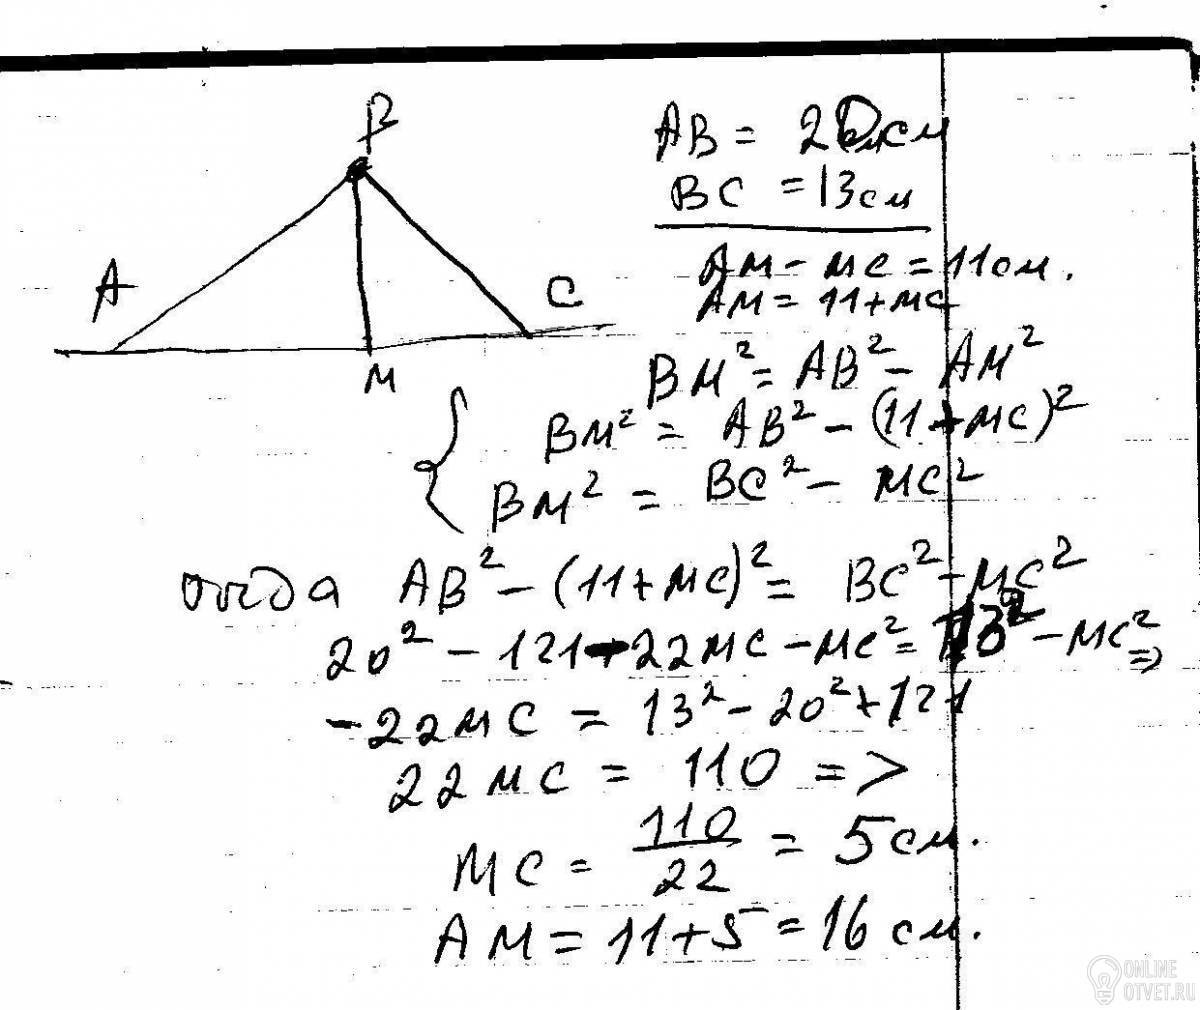 B
A
C
M
AB = 20 см
BC = 13 см
AM - MC = 11 см.
AM = 11 + MC
BM² = AB² - AM²
BM² = AB² - (11 + MC)²
BM² = BC² - MC²
AB² - (11 + MC)² = BC² - MC²
20² - 121 - 22MC - MC² = 13² - MC² =>
-22MC = 13² - 20² + 121
22MC = 110 =>
MC = 110/22 = 5 см.
AM = 11 + 5 = 16 см.
ONLINE
OTVET.RU